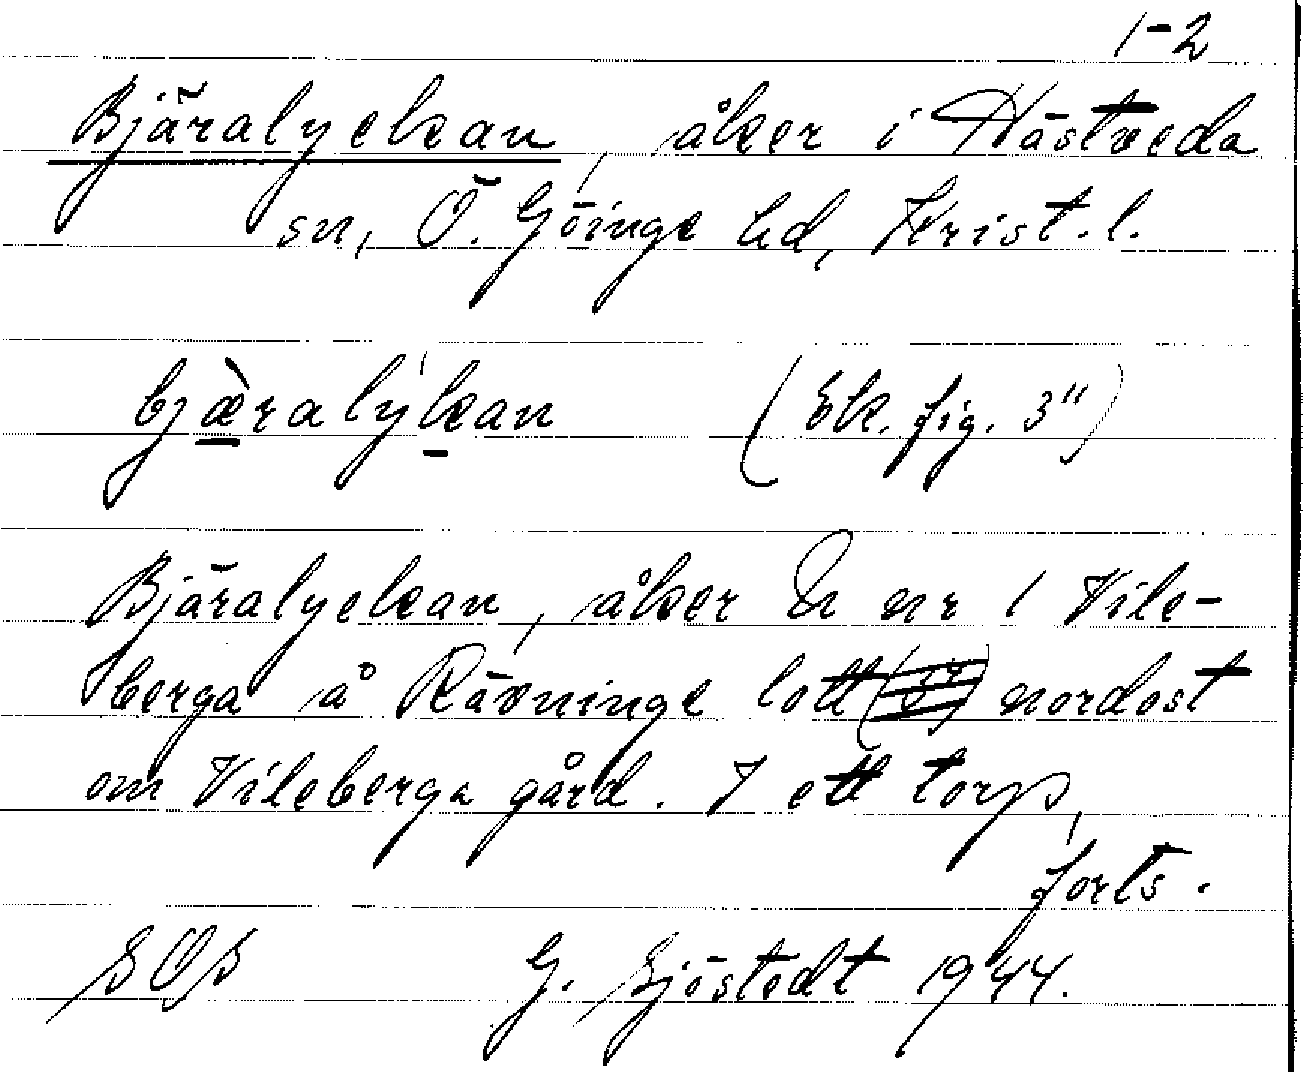 1-2
Bjäralyckan, åker i Hästveda
sn, Ö. Göinge hd, Krist. l.
bjæ̀ralýkan (Ek. fig. 3")
Bjäralyckan, åker nr 1 Vile-
berga å Rävninge lott nordost
om Vileberga gård. I ett torp,
forts.
SOS G. Sjöstedt 1944.